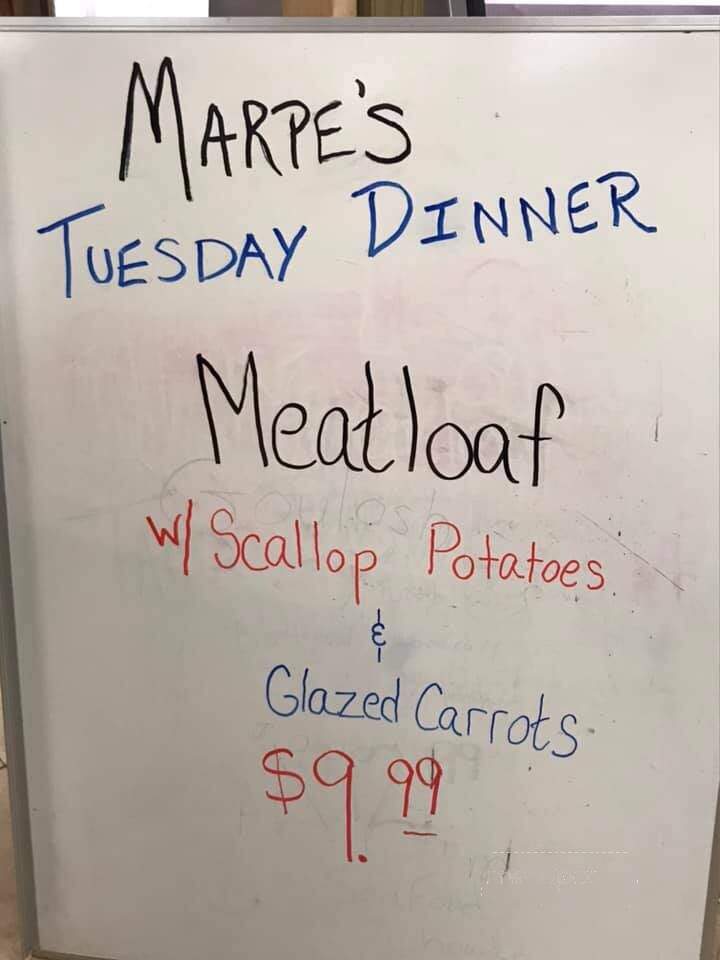 MARPE'S
TUESDAY DINNER
Meatloaf
w/ Scallop Potatoes
&
Glazed Carrots
$9.99